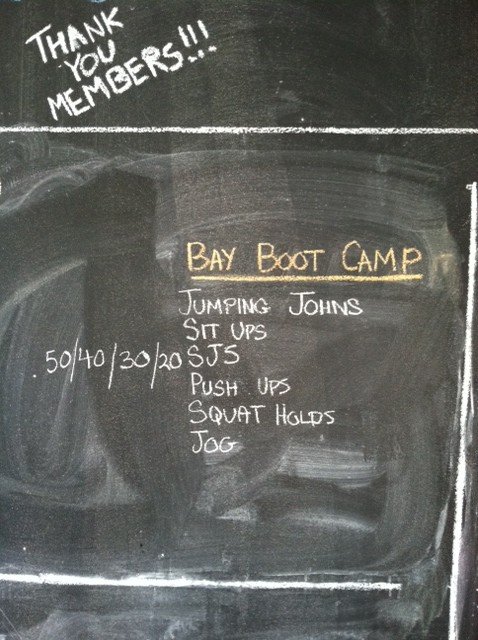 THANK
YOU
MEMBERS!!!
BAY BOOT CAMP
JUMPING JOHNS
SIT UPS
50/40/30/20 SJS
PUSH UPS
SQUAT HOLDS
JOG